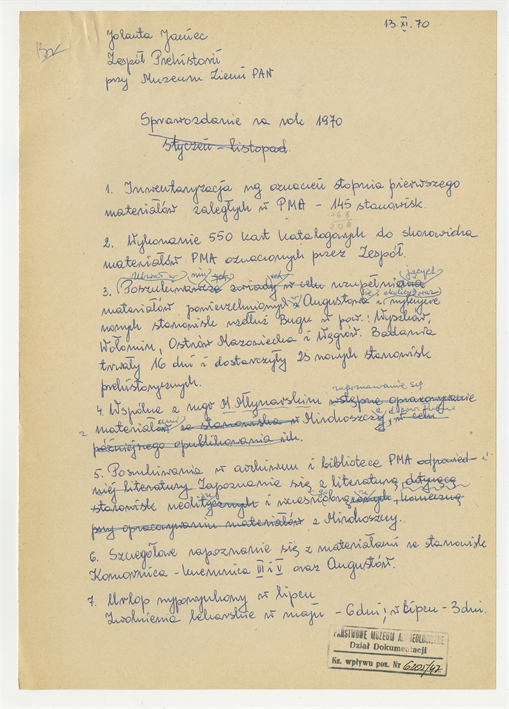 13 XI. 70
Jolanta Janiec
Zespół Prehistorii
przy Muzeum Ziemi PAN
Sprawozdanie za rok 1970
styczeń - listopad
1. Inwentaryzacja wg oznaczeń stopnia pierwszego
materiałów zaległych w PMA - 145 stanowisk.
2. Wykonanie 550 kart katalogowych do skorowidza
materiałów PMA oznaczonych przez Zespół.
3. Poszukiwawcze zwiady w celu uzupełnienia
materiałów powierzchniowych z Augustowa
stanowisk wzdłuż Bugu w pow.: Wyszków,
Wołomin, Ostrów Mazowiecka i Węgrów. Badania
trwały 16 dni i dostarczyły 28 nowych stanowisk
prehistorycznych.
zapoznawanie się
4. Wspólne z mgr M. Młynarskim wstępne opracowywanie
materiałów ze stanowiska w Mirohoszczy w celu
późniejszego opublikowania ich.
5. Poszukiwania w archiwum i bibliotece PMA odpowied-
niej literatury Zapoznanie się z literaturą dotyczącą
stanowisk neolitycznych i konieczną
przy opracowywaniu materiałów z Mirohoszczy.
6. Szczegółowe zapoznanie się z materiałami ze stanowisk
Komornica - krzemnica III i V oraz Augustów.
7. Urlop wypoczynkowy w lipcu
Zwolnienia lekarskie w maju - 6 dni; w lipcu - 3 dni.
PAŃSTWOWE MUZEUM ARCHEOLOGICZNE
Dział Dokumentacji
Kz. wpływu poz. Nr